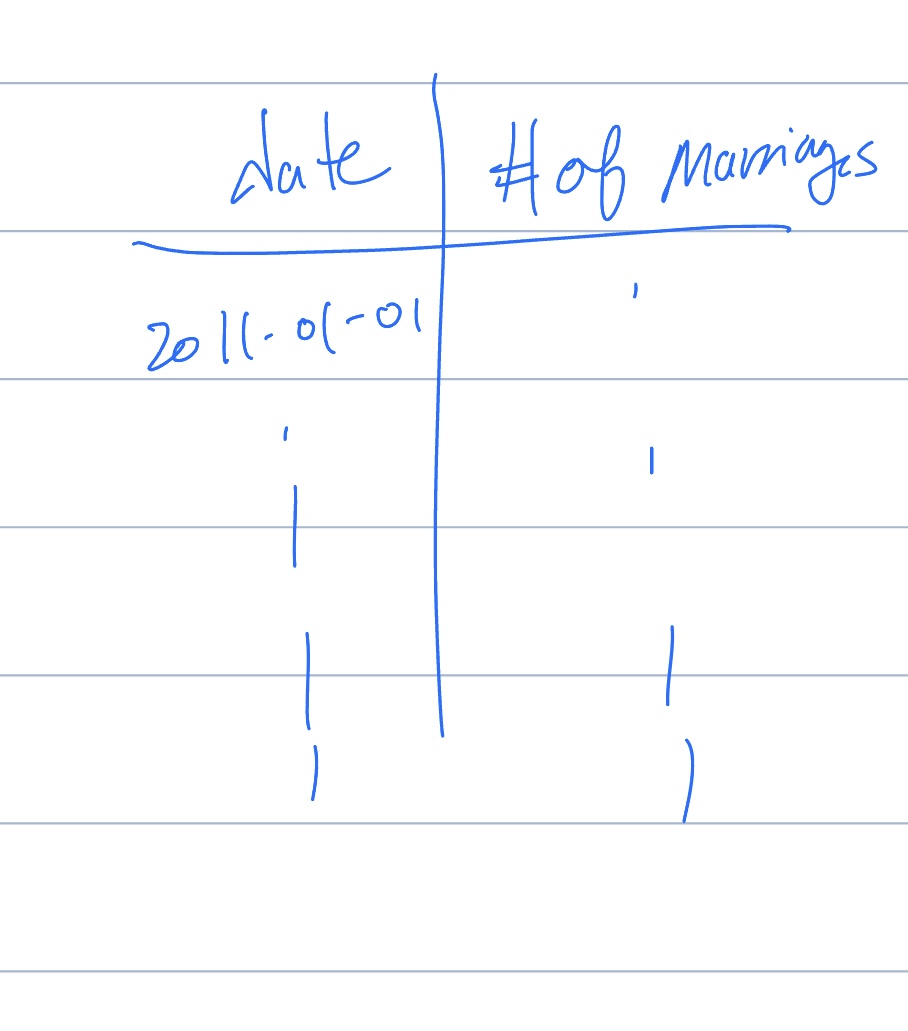 date # of Marriages
2011-01-01